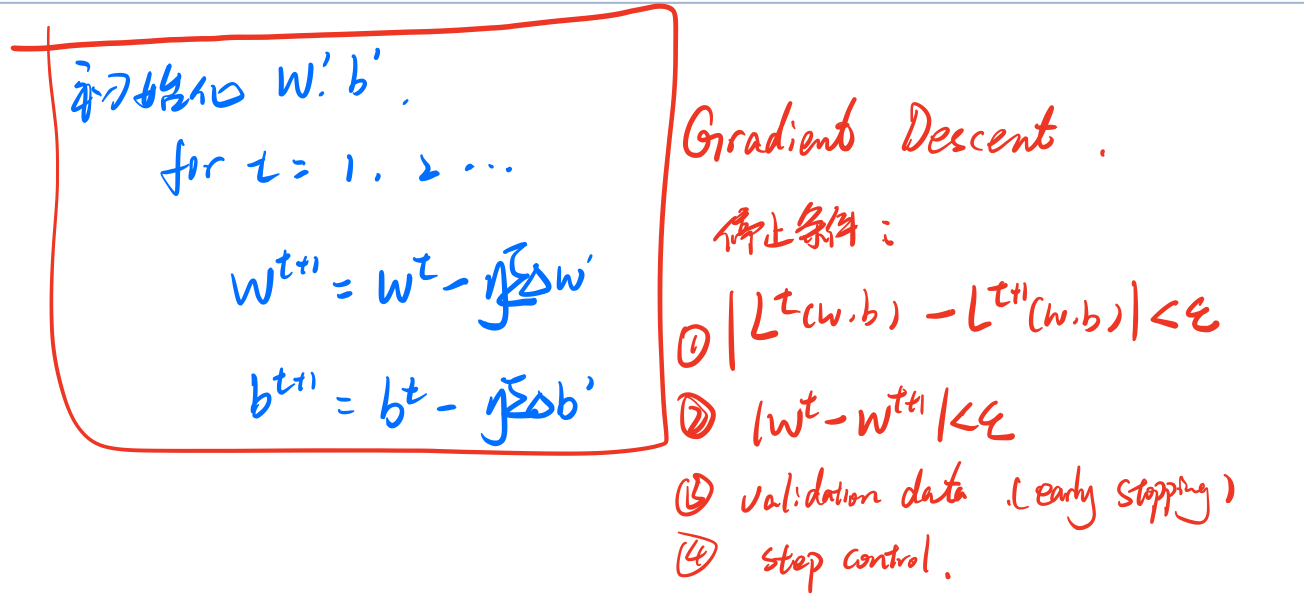 初始化 w¹. b¹.
for t = 1, 2 ...
w^{t+1} = w^t - η ΣΔw'
b^{t+1} = b^t - η ΣΔb'
Gradient Descent.
停止条件：
① |L^t(w.b) - L^{t+1}(w.b)| < ε
② |w^t - w^{t+1}| < ε
③ validation data .(early stopping)
④ step control.